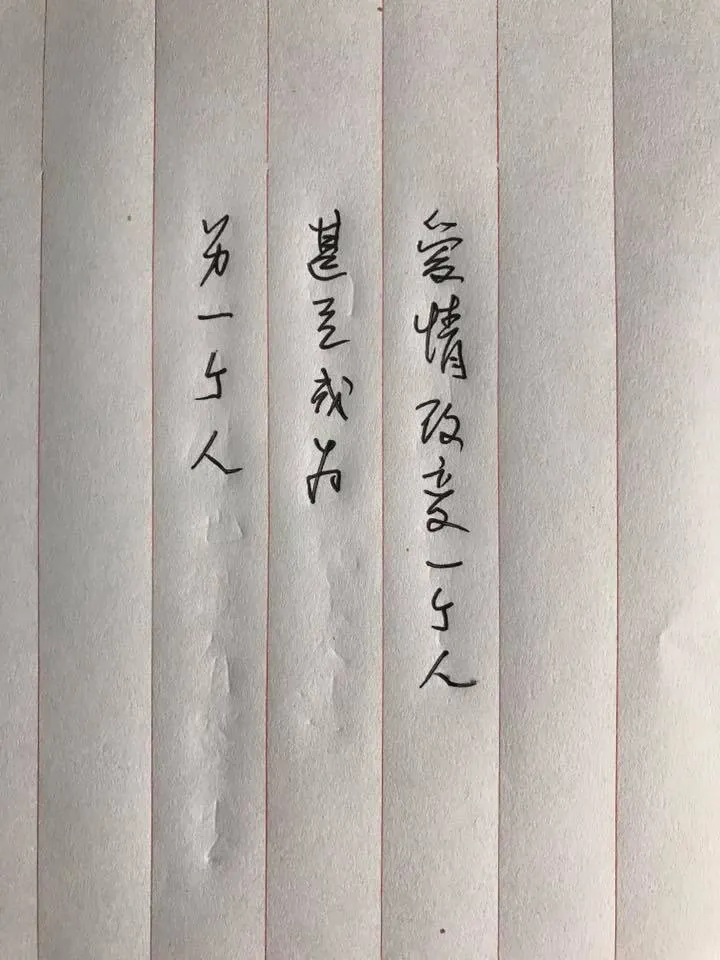 爱情改变一个人
甚至成为
另一个人